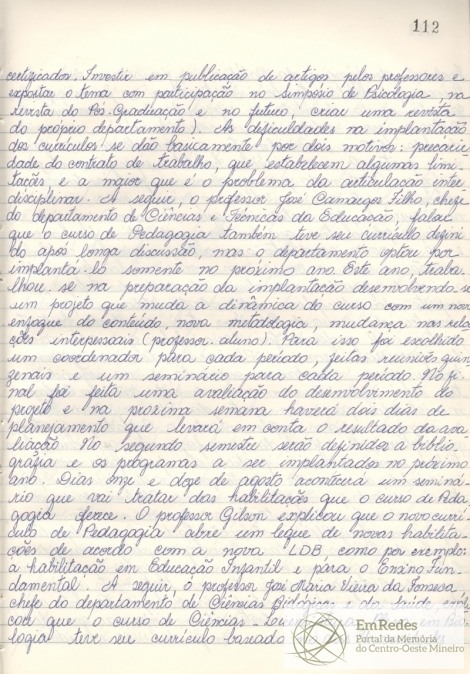 112
certificador. Investir em publicação de artigos pelos professores e
expositar o tema com participação no Simpósio de Psicologia, na
revista do Pós-Graduação e no futuro, criar uma revista
do próprio departamento). As dificuldades na implantação
dos currículos se dão basicamente por dois motivos: precarie
dade do contrato de trabalho, que estabelecem algumas limi-
tações e a maior que é o problema da articulação inter
disciplinar. A seguir, o professor José Camargos Filho, chefe
do departamento de Ciências e Técnicas da Educação, falou
que o curso de Pedagogia também teve seu currículo defini
do após longa discussão, mas o departamento optou por
implantá-lo somente no próximo ano. Este ano, traba
lhou-se na preparação da implantação desenvolvendo-se
um projeto que muda a dinâmica do curso com um novo
enfoque do conteúdo, nova metodologia, mudança nas rela
ções interpessoais (professor-aluno). Para isso foi escolhido
um coordenador para cada período, feitas reuniões quin
zenais e um seminário para cada período. No fi-
nal foi feita uma avaliação do desenvolvimento do
projeto e na próxima semana haverá dois dias de
planejamento que levará em conta o resultado da ava
liação. No segundo semestre serão definidos a biblio-
grafia e os programas a ser implantados no próximo
ano. Dias onze e doze de agosto acontecerá um seminá-
rio que vai tratar das habilitações que o curso de Peda
gogia oferece. O professor Gilson explicou que o novo currí
culo de Pedagogia abre um leque de novas habilita-
ções de acordo com a nova LDB, como por exemplo:
a habilitação em Educação Infantil e para o Ensino Fun-
damental. A seguir, o professor José Maria Vieira da Fonseca,
chefe do departamento de Ciências Biológicas e da Saúde expli
cou que o curso de Ciências - em Bio
logia teve seu currículo baseado
EmRedes
Portal da Memória
do Centro-Oeste Mineiro